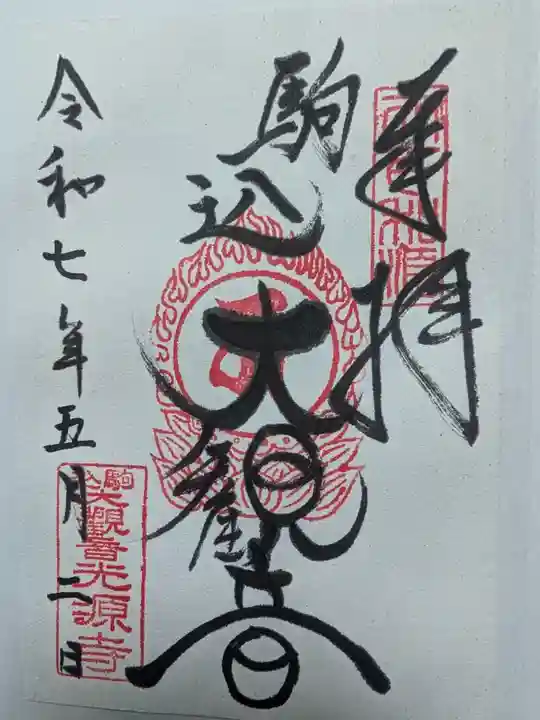 奉拝
駒込
大観音
令和七年五月二日
駒込大觀音光源寺